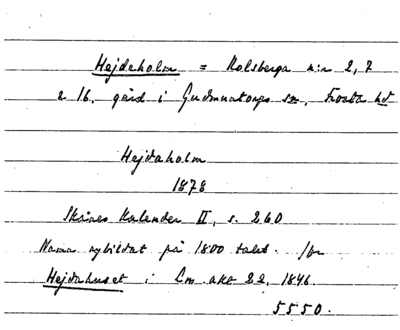 Hejdeholm = Rolsberga n:r 2, 7
o 16. gård i Gudmuntorps sn, Frosta hd
Hejdeholm
1878
Skånes Kalender II, s. 260
Namn nybildat på 1800 talet. /fr
Hejdahuset i Lm akt 22, 1846.
5550.